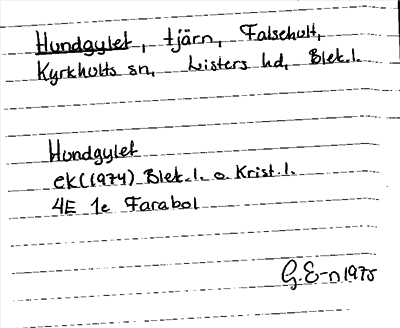 Hundgylet, tjärn, Falsehult,
Kyrkhults sn, Listers hd, Blek.l.
Hundgylet
ek (1974) Blek.l. o. Krist.l.
4E 1e Farabol
G.E-n 1975